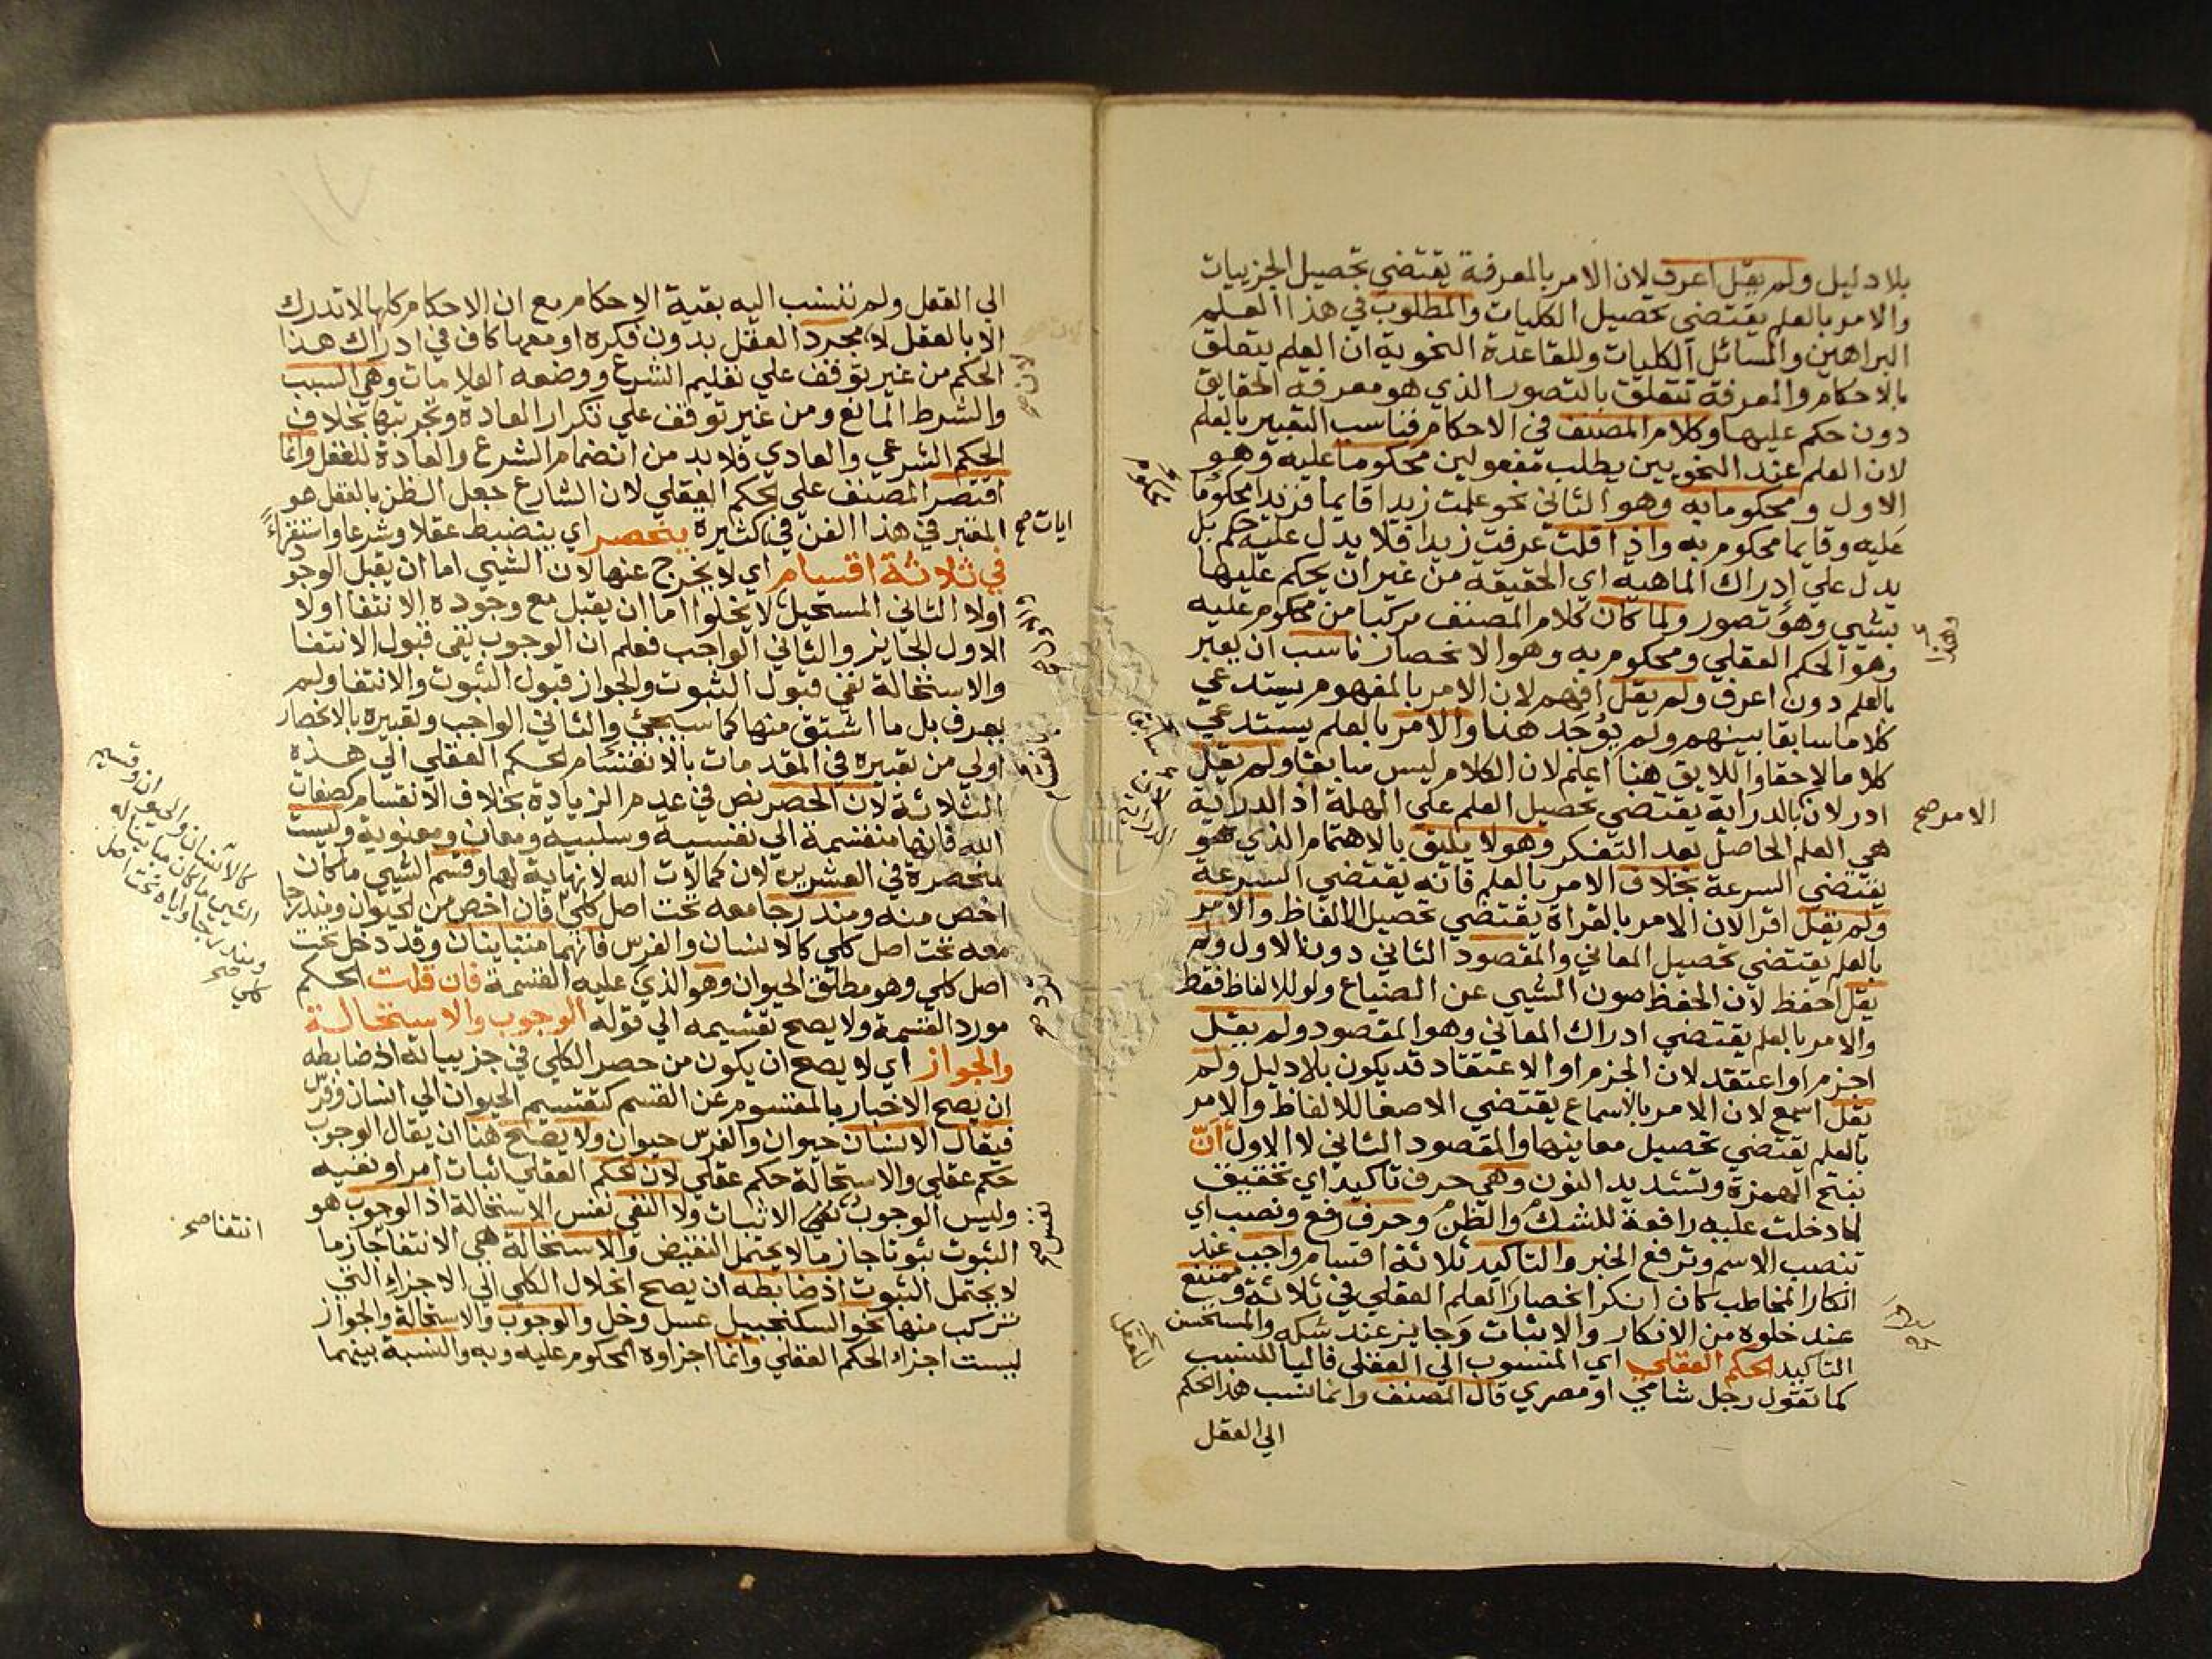 بلا دليل ولم يقل اعرف لان الامر بالمعرفة يقتضي تحصيل الجزييات
والامر بالعلم يقتضي تحصيل الكليات والمطلوب في هذا العلم
البراهين والمسائل الكليات وللقاعدة النحوية ان العلم يتعلق
بالاحكام والمعرفة تتعلق بالتصور الذي هو معرفة الحقايق
دون حكم عليها وكلام المصنف في الاحكام فناسب التعبير بالعلم
لان العلم عند النحويين يطلب مفعولين محكوما عليه وهو
الاول ومحكوما به وهو الثاني نحو علمت زيدا قايما فزيدا محكوما
عليه وقايما محكوم به واذا قلت عرفت زيدا فلا يدل عليه حكم بل
يدل علي ادراك الماهية اي الحقيقة من غير ان يحكم عليها
بشيي وهو تصور ولما كان كلام المصنف مركبا من محكوم عليه
وهو الحكم العقلي ومحكوم به وهو الانحصار ناسب ان يعبر
بالعلم دون اعرف ولم يقل افهم لان الامر بالمفهوم يستدعي
كلاما سابقا بينهم ولم يوجد هنا والامر بالعلم يستدعي
كلاما لاحقا واللايق هنا اعلم لان الكلام ليس سابقا ولم يقل
ادر لان بالدراية يقتضي تحصيل العلم علي المهلة اذ الدراية
هي العلم الحاصل بعد التفكر وهو لا يليق بالاهتمام الذي هو
يقتضي السرعة بخلاف الامر بالعلم فانه يقتضي السرعة
ولم يقل اقرا لان الامر بالقراة يقتضي تحصيل الالفاظ والامر
بالعلم يقتضي تحصيل المعاني والمقصود الثاني دون الاول ولم
يقل احفظ لان الحفظ صون الشيي عن الضياع ولو للالفاظ فقط
والامر بالعلم يقتضي ادراك المعاني وهو المقصود ولم يقل
اجزم او اعتقد لان الجزم او الاعتقاد قد يكون بلا دليل ولم
يقل اسمع لان الامر بالاسماع يقتضي الاصغا للالفاظ والامر
بالعلم يقتضي تحصيل معاينها والمقصود الثاني لا الاول أنّ
بفتح الهمزة وتشديد النون وهي حرف تاكيد اي تحقيق
لما دخلت عليه رافعة للشك والظن وحرف رفع ونصب اي
تنصب الاسم وترفع الخبر والتاكيد ثلاثة اقسام واجب عند
انكار المخاطب كان انكر انحصار العلم العقلي في ثلاثة وممتنع
عند خلوه من الانكار والاثبات وجايز عند شكه والمستحسن
التاكيد الحكم العقلي اي المنسوب الي العقل فاليا للنسب
كما تقول رجل شامي او مصري قال المصنف وانما نسب هذا الحكم
الي العقل
الامر صح
الي العقل ولم ننسب اليه بقية الاحكام مع ان الاحكام كلها لا تدرك
الا بالعقل لا مجرد العقل بدون فكرة او معها كاف في ادراك هذا
الحكم من غير توقف علي تعليم الشرع ووضعه العلامات وهي السبب
والشرط المانع ومن غير توقف علي تكرار العادة وتجربتها بخلاف
الحكم الشرعي والعادي فلا بد من انضمام الشرع والعادة للعقل وانما
اقتصر المصنف علي الحكم العقلي لان الشارع جعل الظن بالعقل هو
المعتبر في هذا الفن في كثيرة ينحصر اي ينضبط عقلا وشرعا واستقراءً
في ثلاثة اقسام اي لا يخرج عنها لان الشيي اما ان يقبل الوجود
اولا الثاني المستحيل لا يخلوا اما ان يقبل مع وجوده الانتفا اولا
الاول الجايز والثاني الواجب فعلم ان الوجوب نفي قبول الانتفا
والاستحالة نفي قبول الثبوت والجواز قبول الثبوت والانتفا ولم
يعرف بل ما اشتق منها كما سيجئ والثاني الواجب وتعبيره بالانحصار
اولي من تعبيره في المقدمات بالانقسام الحكم العقلي الي هذه
الثلاثة لان الحصر نص في عدم الزيادة بخلاف الانقسام كصفات
الله فانها منقسمة الي نفسية وسلبية ومعان ومعنوية وليست
منحصرة في العشرين لان كمالات الله لا نهاية لها وقسم الشيي ما كان
اخص منه ومندرجا معه تحت اصل كلي فان اخص من الحيوان ومندرجا
معه تحت اصل كلي كالانسان والفرس فانهما متباينان وقد دخل تحت
اصل كلي وهو مطلق الحيوان وهو الذي عليه القسمة فان قلت الحكم
مورد القسمة ولا يصح تقسيمه الي قوله الوجوب والاستحالة
والجواز اي لا يصح ان يكون من حصر الكلي في جزيياته اذ ضابطه
ان يصح الاخبار بالمقسوم عن القسم كتقسيم الحيوان الي انسان وفرس
فيقال الانسان حيوان والفرس حيوان ولا يصح هنا ان يقال الوجوب
حكم عقلي والاستحالة حكم عقلي لان الحكم العقلي اثبات امر او نفيه
وليس الوجوب نفي الاثبات ولا النفي نفس الاستحالة اذ الوجوب هو
الثبوت ثبوتا جازما لا يحتمل النقيض والاستحالة هي الانتفا جازما
لا يحتمل الثبوت اذ ضابطه ان يصح انحلال الكلي الي الاجزاء التي
تتركب منها نحو السكنجبيل عسل وخل والوجوب والاستحالة والجواز
ليست اجزاء الحكم العقلي وانما اجزاوه المحكوم عليه وبه والنسبة بينهما
ايات صح
كالانسان والحيوان وقسيم
الشيي ما كان مباينا له
ومندرجا واياه تحت اصل
كلي صح
انتفا صح